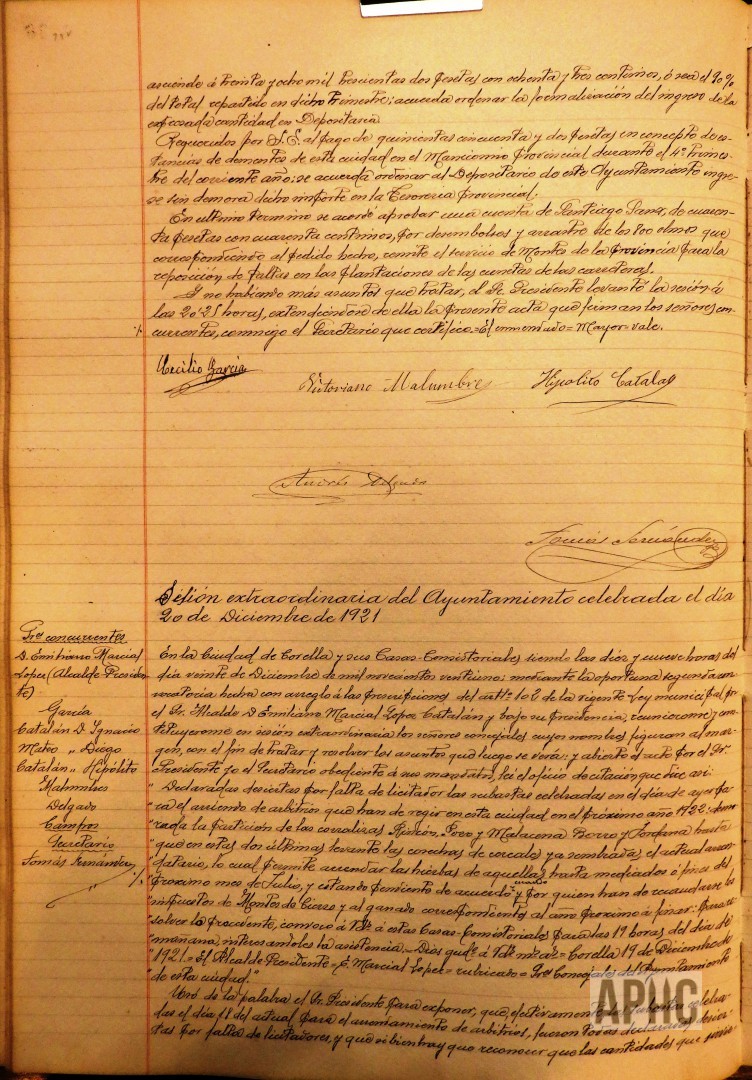 asciende á treinta y ocho mil trescuentas dos pesetas con ochenta y tres centimos, ó sea el 90%
del total repartido en dicho trimestre; acuerda ordenar la formalización del ingreso de la
expresada cantidad en Depositaria
Requeridos por S. E. al pago de quinientas cincuenta y dos pesetas en concepto de es-
tancias de dementes de esta ciudad en el Manicomio Provincial durante el 4º trimes-
tre del corriente año; se acuerda ordenar al Depositario de este Ayuntamiento ingre-
se sin demora dicho importe en la Tesoreria provincial.
En ultimo termino se acordó aprobar una cuenta de Santiago Sanz, de cuaren-
ta pesetas con cuarenta centimos, por desembolsos y arrastre de los 800 olmos que
correspondiendo al pedido hecho, remite el servicio de Montes de la provincia para la
reposición de faltas en las plantaciones de las cunetas de las carreteras.
Y no habiendo más asuntos que tratar, el Sr. Presidente levantó la sesión á
las 20'25 horas, extendiendose de ella la presente acta que firman los señores con-
currentes, conmigo el Secretario que certifico = El enmendado = Mayor = vale.
Cecilio Garcia
Victoriano Malumbres
Hipolito Catalan
Andrés Delgado
Tomás Fernández
Sesión extraordinaria del Ayuntamiento celebrada el día
20 de Diciembre de 1921
Sres concurrentes
D. Emiliano Marcial
Lopez (Alcalde-Presiden
te)
García
Catalán D. Ignacio
Mateo " Diego
Catalán " Hipólito
Malumbres
Delgado
Campos
Secretario
Tomás Fernández
En la Ciudad de Corella y sus Casas-Consistoriales siendo las diez y nueve horas del
día veinte de Diciembre de mil novecientos veintiuno: mediante la oportuna segunda con-
vocatoria hecha con arreglo á las prescripciones del artº 102 de la vigente Ley municipal por
el Sr. Alcalde D. Emiliano Marcial Lopez Catalán y bajo su Presidencia, reunieronse y cons-
tituyeronse en sesión extraordinaria los señores concejales cuyos nombres figuran al mar-
gen, con el fin de tratar y resolver los asuntos que luego se verá: y abierto el acto por el Sr.
Presidente yo el Secretario obediente á sus mandatos, leí el oficio de citación que dice así
"Declaradas desiertas por falta de licitador las subastas celebradas en el día de ayer pa-
"ra el arriendo de arbitrios que han de regir en esta ciudad en el próximo año 1922:
"rada la partición de las corralizas Rincón, Soro y Malacena Borro y hasta
"que en estas dos últimas levante las cosechas de cereales ya sembradas el actual arren-
"datario, lo cual permite arrendar las hierbas de aquellas hasta mediados ó fines del
"próximo mes de Julio, y estando pendiente de acuerdo y por quien han de recaudarse los
"impuestos de Montes de Cierzo y al ganado correspondientes al año próximo á finar: Para re-
"solver lo procedente, convoco á Vds. á estas Casas-Consistoriales para las 19 horas del día de
"mañana, interesandoles la asistencia = Dios gude á Vds. ms. as. = Corella 19 de Diciembre de
"1921 = El Alcalde Presidente = E. Marcial Lopez = rubricado = Sres Concejales del Ayuntamiento
"de esta ciudad."
Usó de la palabra el Sr. Presidente para exponer, que, efectivamente las subastas celebra-
das el día 18 del actual para el arrendamiento de arbitrios, fueron todas declaradas desier-
tas por falta de licitadores, y que si bien hay que reconocer que las cantidades que
APUC